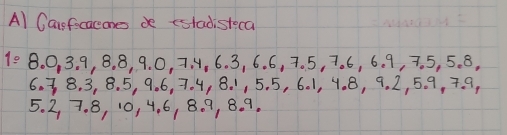 A) Caıʃıcacones de estadistica
1º 8.0, 3.9, 8.8, 9.0, 7.4, 6.3, 6.6, 7.5, 7.6, 6.9, 7.5, 5.8,
6.7, 8.3, 8.5, 9.6, 7.4, 8.1, 5.5, 6.1, 4.8, 9.2, 5.9, 7.9,
5.2, 7.8, 10, 4.6, 8.9, 8.9.